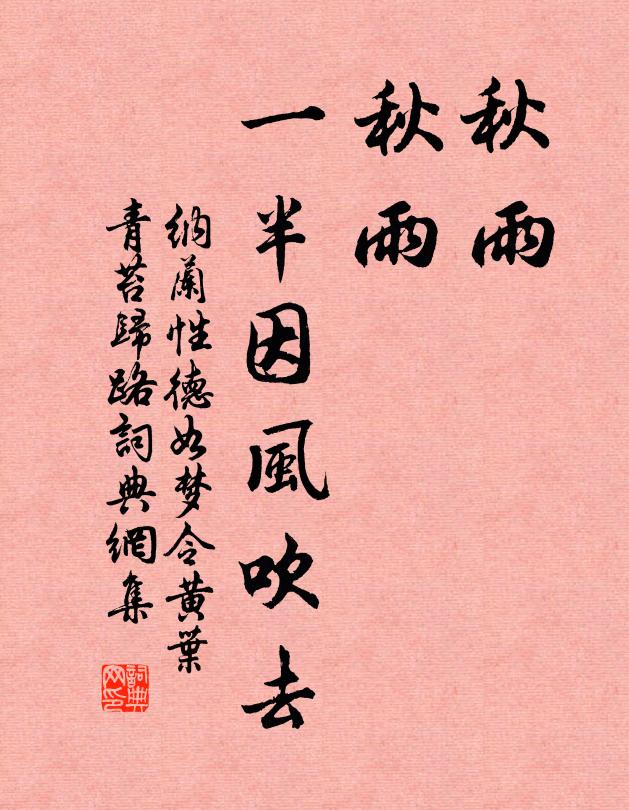 秋雨
秋雨
一半因風吹去
納蘭性德如梦令黄葉
青苔歸路詞典網集
詞典
网印